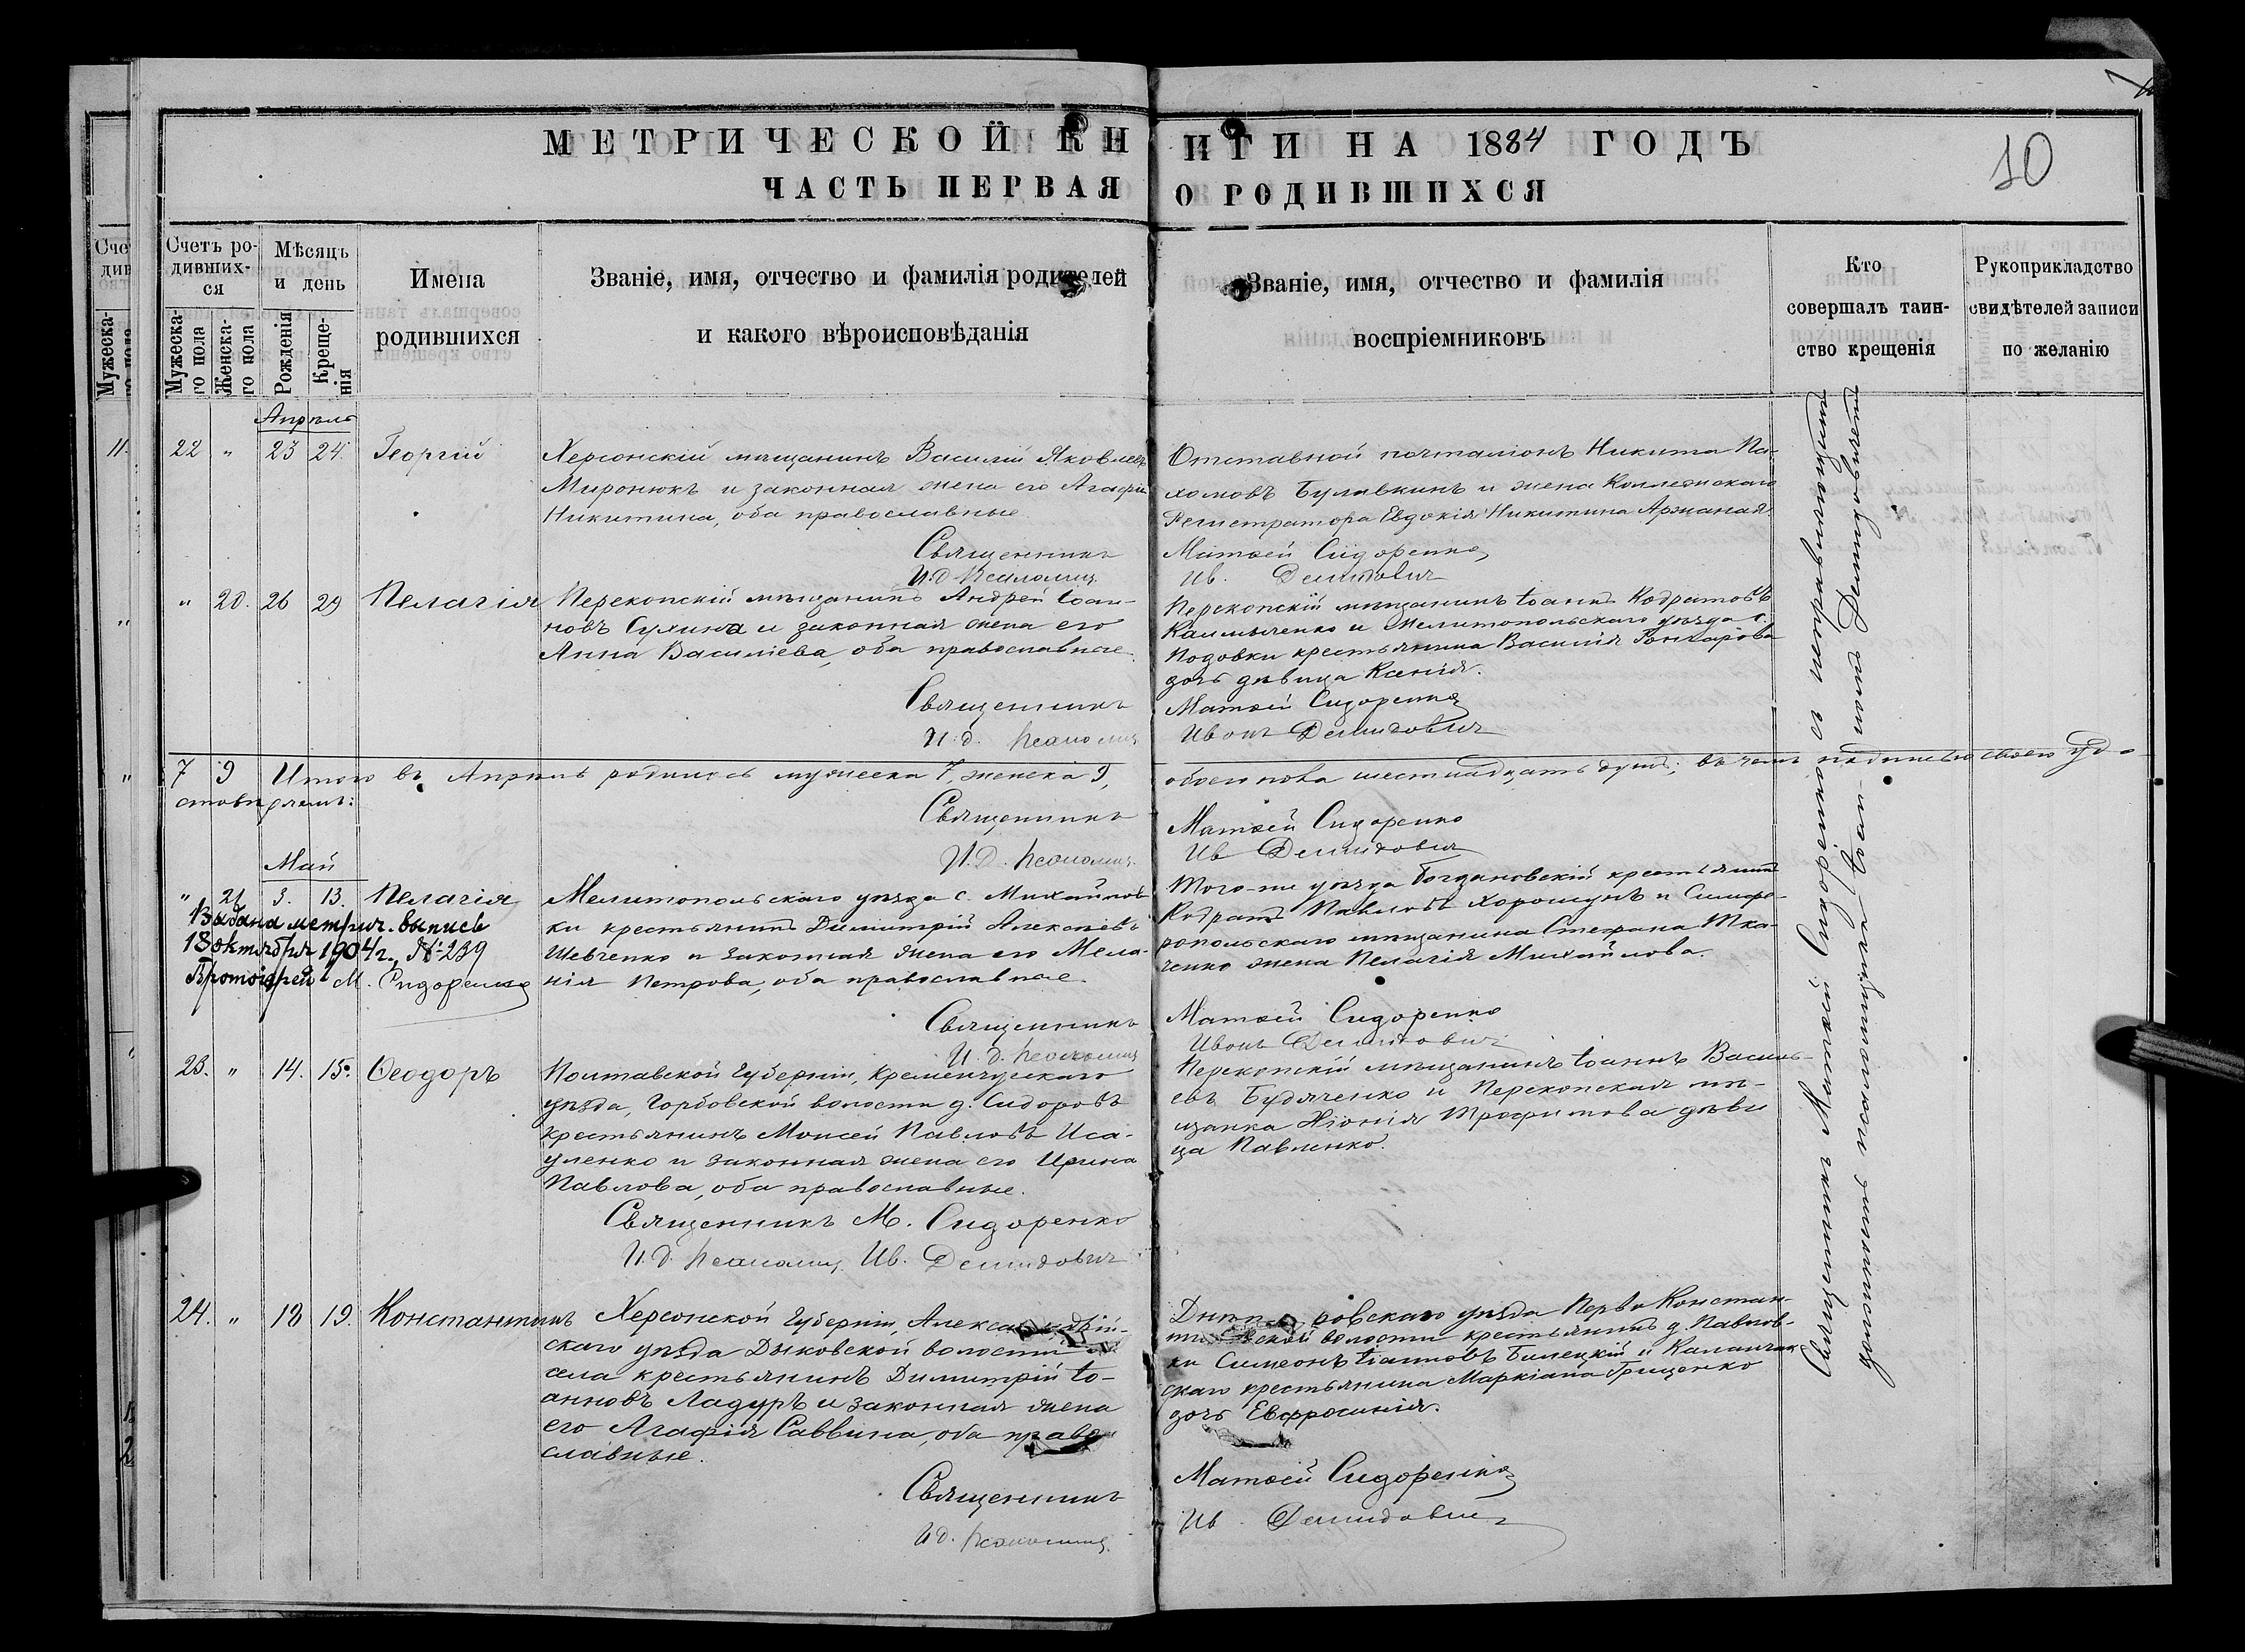 МЕТРИЧЕСКОЙ КНИГИ НА 1884 ГОДЪ
ЧАСТЬ ПЕРВАЯ О РОДИВШИХСЯ
10
Счетъ ро-
дивших-
ся
Мужеска-
го пола
Женска-
го пола
Мѣсяцъ
и день
Рожденія
Креще-
нія
Имена
родившихся
Званіе, имя, отчество и фамилія родителей
и какого вѣроисповѣданія
Званіе, имя, отчество и фамилія
воспріемниковъ
Кто
совершалъ таин-
ство крещенія
Рукоприкладство
свидѣтелей записи
по желанію
Апрѣль
22 " 23 24. Георгій
Херсонскій мѣщанинъ Василій Яковлевъ
Миронюкъ и законная жена его Агафія
Никитина, оба православные
Священникъ
И.д. псаломщ.
Отставной почталіонъ Никита Па-
хомовъ Булавкинъ и жена Коллежскаго
Регистратора Евдокія Никитина Аржаная.
Матѳей Сидоренко,
Ив. Демидовичъ
" 20. 26 29 Пелагія
Перекопскій мѣщанинъ Андрей Іоан-
новъ Сухина и законная жена его
Анна Василіева, оба православные.
Священникъ
И.д. псаломщ
Перекопскій мѣщанинъ Іоаннъ Кодратовъ
Калмыченко и Мелитопольскаго уѣзда с.
Подовки крестьянина Василія Гончарова
дочь дѣвица Ксенія.
Матѳей Сидоренко
Иванъ Демидовичъ
7 9 Итого въ Апрѣлѣ родилось мужеска 7, женска 9, обоего пола шестнадцать душъ; въ чемъ подписью своею удо-
стовѣряемъ:
Священникъ Матѳей Сидоренко
И.д. псаломщ. Ив Демидовичъ
Май
" 21 3. 13. Пелагія
Выдана метрич. выпись
18 октября 1904 г., № 239
Протоіерей М. Сидоренко
Мелитопольскаго уѣзда с. Михайлов-
ки крестьянинъ Димитрій Алексѣевъ
Шевченко и законная жена его Мела-
нія Петрова, оба православные.
Священникъ
И.д. псаломщ
Того-же уѣзда Богдановскій крестьянинъ
Кодратъ Павловъ Хорошунъ и Симфе-
ропольскаго мѣщанина Стефана Тка-
ченко жена Пелагія Михайлова.
Матѳей Сидоренко
Иванъ Демидовичъ
23. " 14. 15. Ѳеодоръ
Полтавской губерніи, Кременчугскаго
уѣзда, Горбовской волости д. Сидоровъ
крестьянинъ Моисей Павловъ Иса-
уленко и законная жена его Ирина
Павлова, оба православные.
Священникъ М. Сидоренко
И.д. псаломщ. Ив. Демидовичъ
Перекопскій мѣщанинъ Іоаннъ Василь-
евъ Будяченко и Перекопская мѣ-
щанка Хіонія Трофимова дѣви
ца Павленко.
24. " 18 19. Константинъ
Херсонской губерніи, Александрій-
скаго уѣзда Дыковской волости
села крестьянинъ Димитрій Іо-
анновъ Ладуръ и законная жена
его Агафія Саввина, оба право
славные.
Священникъ
И.д. псаломщ.
Днѣпровскаго уѣзда Перво Констан-
тиновской волости крестьянинъ д. Павлов-
ки Симеонъ Іоанновъ Билецкій и Каланчак-
скаго крестьянина Маркіана Грищенко
дочь Евфросинія.
Матѳей Сидоренко
Ив. Демидовичъ
Священникъ Матѳей Сидоренко съ исправляющимъ
должность псаломщика Іоанномъ Демидовичемъ